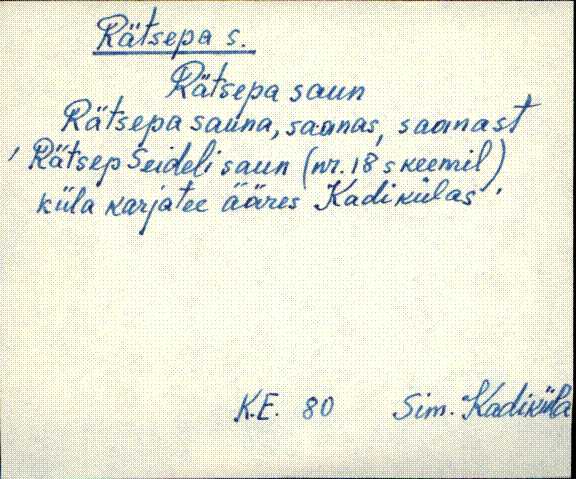 Rätsepa s.
Rätsepa saun
Rätsepa sauna, saunas, saunast
'Rätsep Seideli saun (nr. 18 skeemil)
küla karjatee ääres Kadikülas'
K.E. 80 Sim. Kadiküla